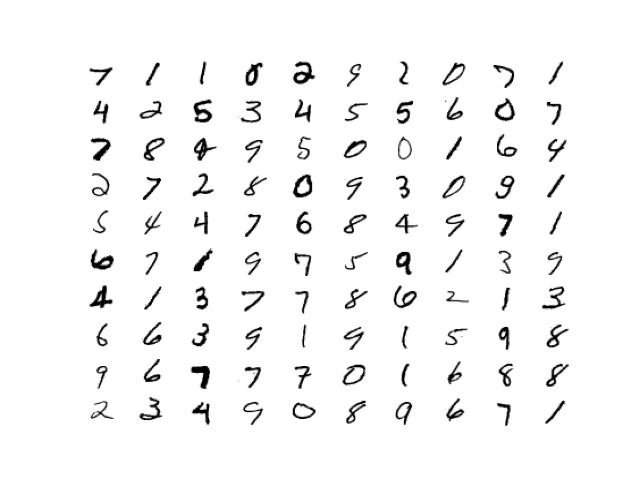 7 1 1 0 2 9 2 0 7 1
4 2 5 3 4 5 5 6 0 7
7 8 4 9 5 0 0 1 6 4
2 7 2 8 0 9 3 0 9 1
5 4 4 7 6 8 4 9 7 1
6 7 1 9 7 5 9 1 3 9
4 1 3 7 7 8 6 2 1 3
6 6 3 9 1 9 1 5 9 8
9 6 7 7 7 0 1 6 8 8
2 3 4 9 0 8 9 6 7 1